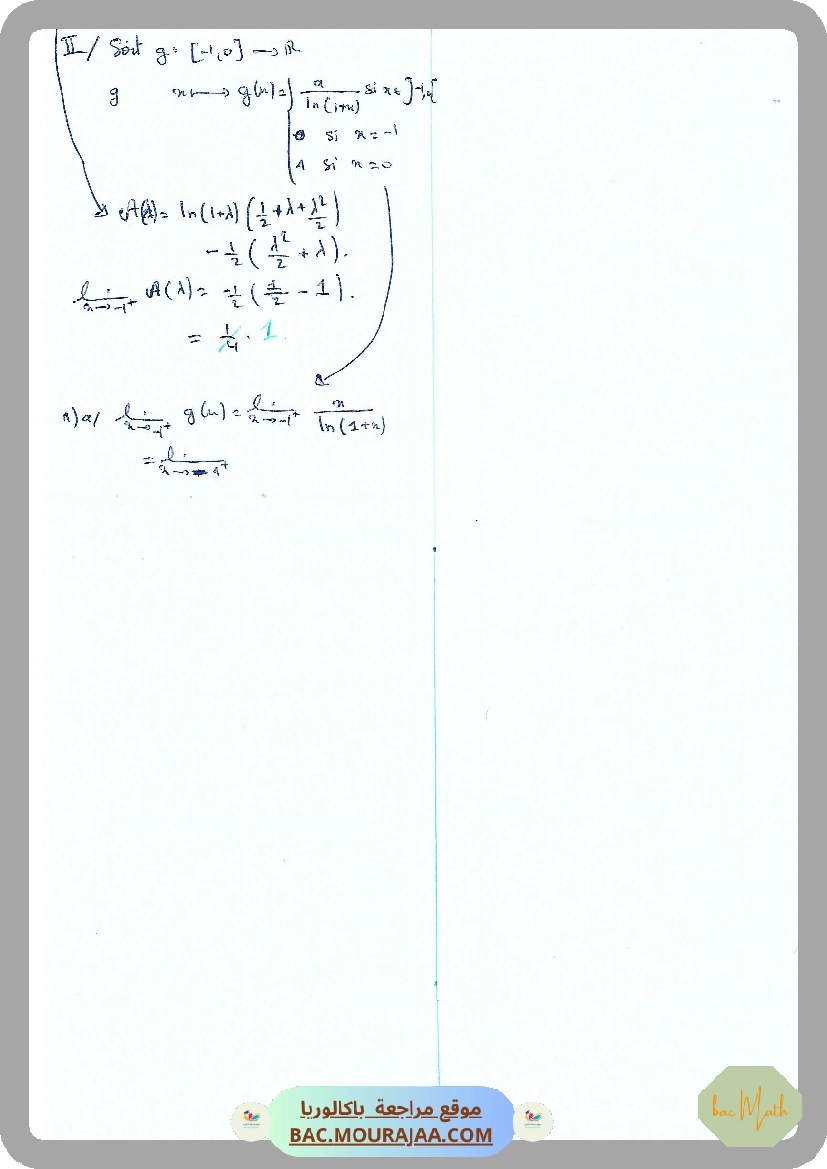 II/ Soit g: [-1,0] → ℝ
g x ↦ g(x) = { x / ln(1+x) si x ∈ ]-1,0[
0 si x = -1
1 si x = 0
A(λ) = ln(1+λ) (1/2 + λ + λ²/2)
- 1/2 (λ²/2 + λ).
lim x→-1⁺ A(λ) = -1/2 (1/2 - 1).
= 1/4 . 1.
1) a/ lim x→-1⁺ g(x) = lim x→-1⁺ x / ln(1+x)
= lim x→-1⁺
موقع مراجعة باكالوريا
BAC.MOURAJAA.COM
bac Math